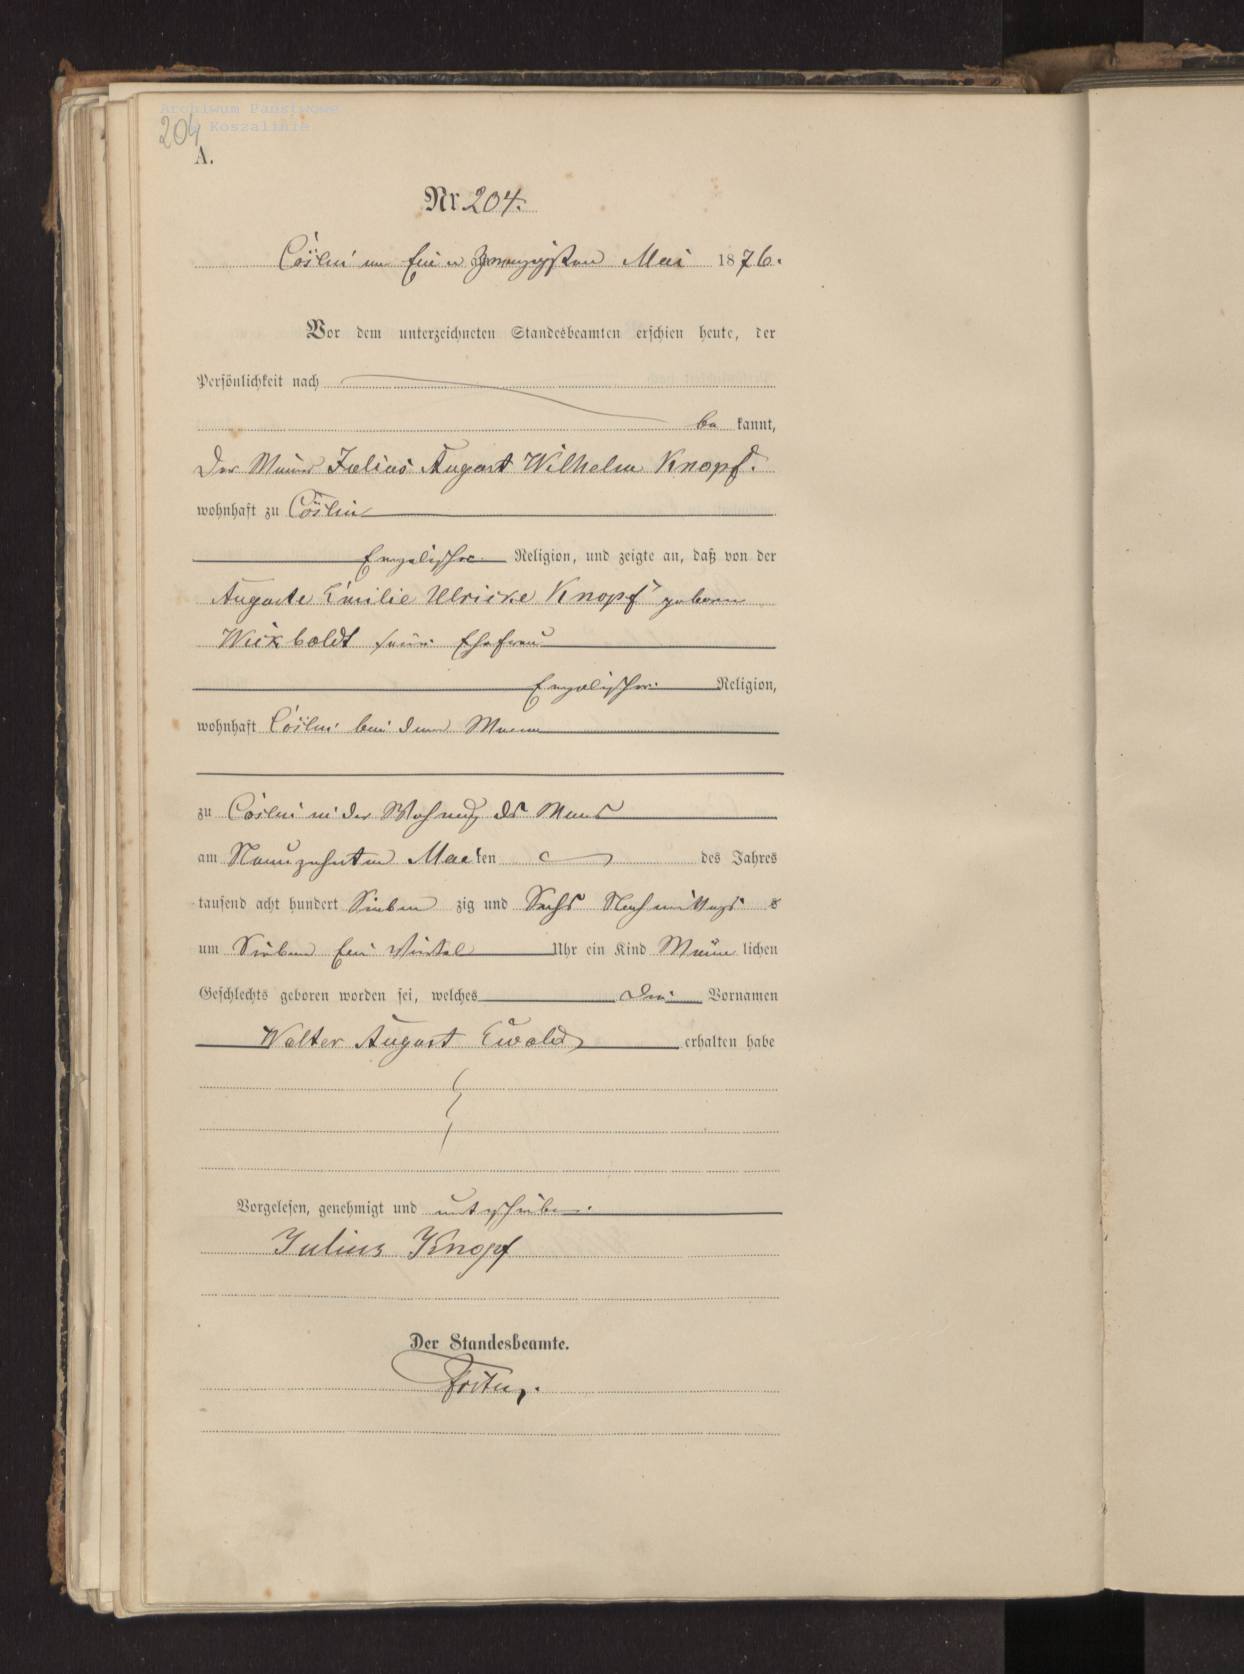 Archiwum Państwowe
Koszalinie
204
A.
Nr 204.
Cöslin am Ein u zwanzigsten Mai 1876.
Vor dem unterzeichneten Standesbeamten erschien heute, der
Persönlichkeit nach
be kannt,
Der Maurer Julius August Wilhelm Knopf.
wohnhaft zu Cöslin
Evngelischer Religion, und zeigte an, daß von der
Auguste Emilie Ulricke Knopf geboren
Wickboldt seine Ehefrau
Evngelischer Religion,
wohnhaft Cöslin bei ihrem Manne
zu Cöslin in der Wohnung des Manns
am Neunzehnten Mai ten des Jahres
tausend acht hundert Sieben zig und Sechs Nachmittags s
um Sieben Ein Viertel Uhr ein Kind Männ lichen
Geschlechts geboren worden sei, welches Drei Vornamen
Walter August Ewald erhalten habe
Vorgelesen, genehmigt und unterschrieben.
Julius Knopf
Der Standesbeamte.